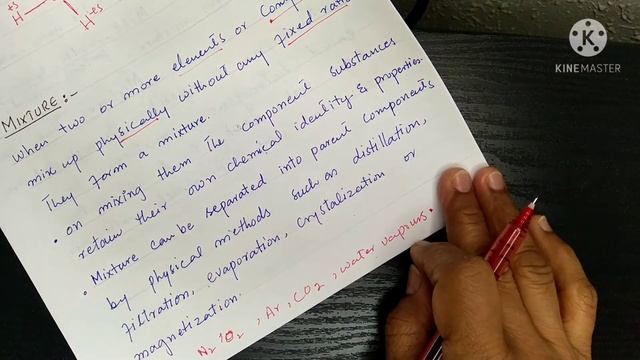 H
H+ξs
MIXTURE:-
When two or more elements or
mix up physically without any fixed ratio
They form a mixture.
• on mixing them The component substances
retain their own chemical identity & properties.
• Mixture can be separated into parent components
by physical methods such as distillation,
filtration, evaporation, crystalization or
magnetization.
N2, O2, Ar, CO2, water vapours.
K
KINEMASTER